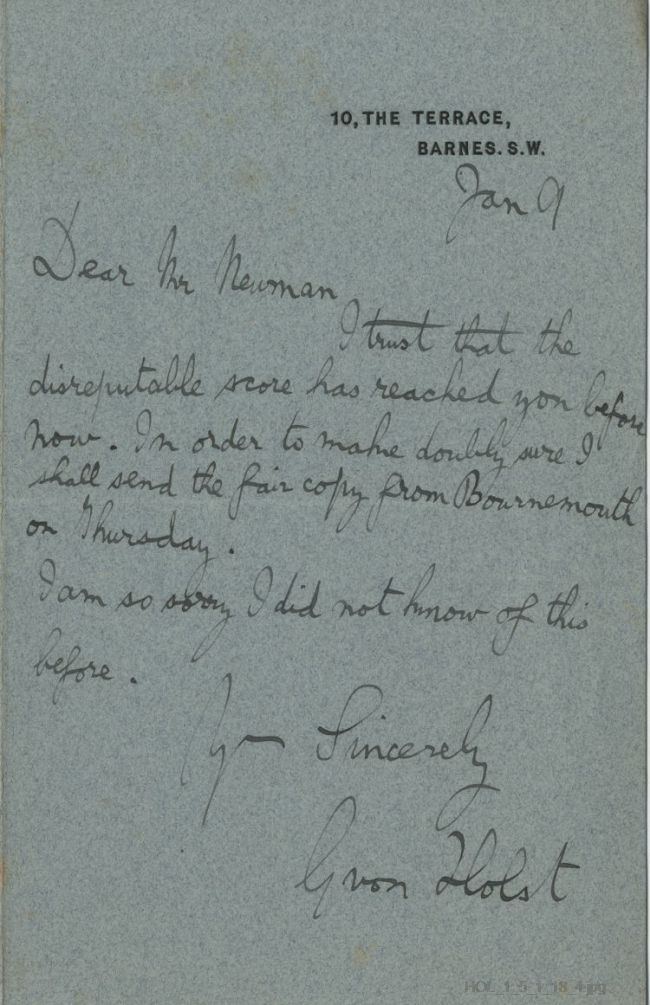 10, THE TERRACE,
BARNES. S.W.
Jan 9
Dear Mr Newman
I trust that the
disreputable score has reached you before
now. In order to make doubly sure I
shall send the fair copy from Bournemouth
on Thursday.
I am so sorry I did not know of this
before.
Yr Sincerely
G von Holst
HOL_1_5_1_18_4.jpg